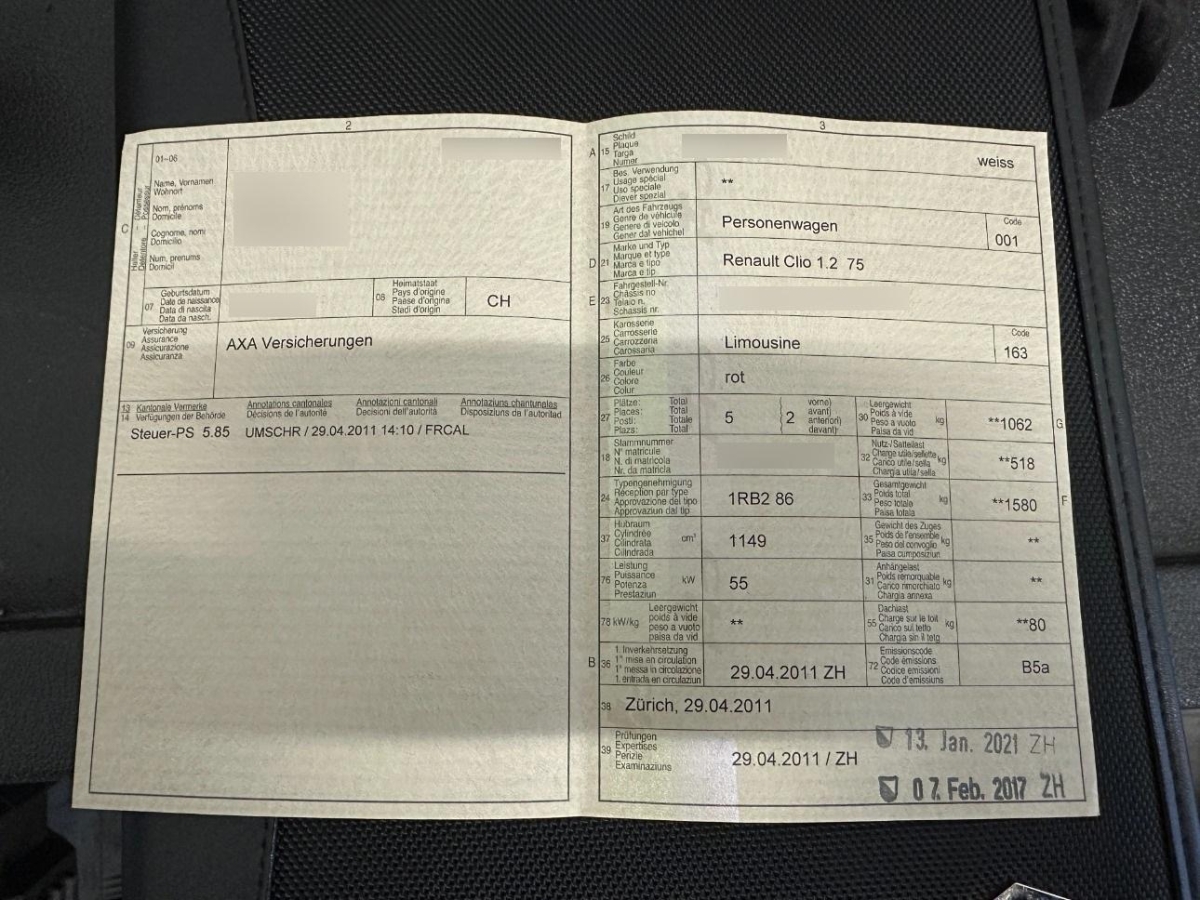 2
01-06
Name, Vornamen
Wohnort
Nom, prénoms
Domicile
C
Cognome, nomi
Domicilio
Num, prenums
Domicil
07
Geburtsdatum
Date de naissance
Data di nascita
Data da nasch.
08
Heimatstaat
Pays d'origine
Paese d'origine
Stadi d'origin
CH
09
Versicherung
Assurance
Assicurazione
Assicuranza
AXA Versicherungen
13 Kantonale Vermerke Annotations cantonales Annotazioni cantonali Annotaziuns chantunales
14 Verfügungen der Behörde Décisions de l'autorité Decisioni dell'autorità Disposiziuns da l'autoritad
Steuer-PS 5.85 UMSCHR / 29.04.2011 14:10 / FRCAL
3
A 15
Schild
Plaque
Targa
Numer
weiss
17
Bes. Verwendung
Usage spécial
Uso speciale
Diever spezial
**
19
Art des Fahrzeugs
Genre de véhicule
Genere di veicolo
Gener dal vehichel
Personenwagen
Code
001
D 21
Marke und Typ
Marque et type
Marca e tipo
Marca e tip
Renault Clio 1.2 75
E 23
Fahrgestell-Nr.
Châssis no
Telaio n.
Schassis nr.
25
Karosserie
Carrosserie
Carrozzeria
Carossaria
Limousine
Code
163
26
Farbe
Couleur
Colore
Colur
rot
27
Plätze: Total
Places: Total
Posti: Totale
Plazs: Total
5
2
vorne)
avant)
anteriori)
davant)
30
Leergewicht
Poids à vide
Peso a vuoto
Paisa da vid
kg
**1062
G
18
Stammnummer
N° matricule
N. di matricola
Nr. da matricla
32
Nutz-/Sattellast
Charge utile/sellette
Carico utile/sella
Chargia utila/sella
kg
**518
24
Typengenehmigung
Réception par type
Approvazione del tipo
Approvaziun dal tip
1RB2 86
33
Gesamtgewicht
Poids total
Peso totale
Paisa totala
kg
**1580
F
37
Hubraum
Cylindrée
Cilindrata
Cilindrada
cm³
1149
35
Gewicht des Zuges
Poids de l'ensemble
Peso del convoglio
Paisa cumposiziun
kg
**
76
Leistung
Puissance
Potenza
Prestaziun
kW
55
31
Anhängelast
Poids remorquable
Carico rimorchiato
Chargia annexa
kg
**
78 kW/kg
Leergewicht
poids à vide
peso a vuoto
paisa da vid
**
55
Dachlast
Charge sur le toit
Carico sul tetto
Chargia sin il tetg
kg
**80
B 36
1. Inverkehrsetzung
1° mise en circulation
1° messa in circolazione
1. entrada en circulaziun
29.04.2011 ZH
72
Emissionscode
Code émissions
Codice emissioni
Code d'emissiuns
B5a
38 Zürich, 29.04.2011
39
Prüfungen
Expertises
Perizie
Examinaziuns
29.04.2011 / ZH
13. Jan. 2021 ZH
07. Feb. 2017 ZH